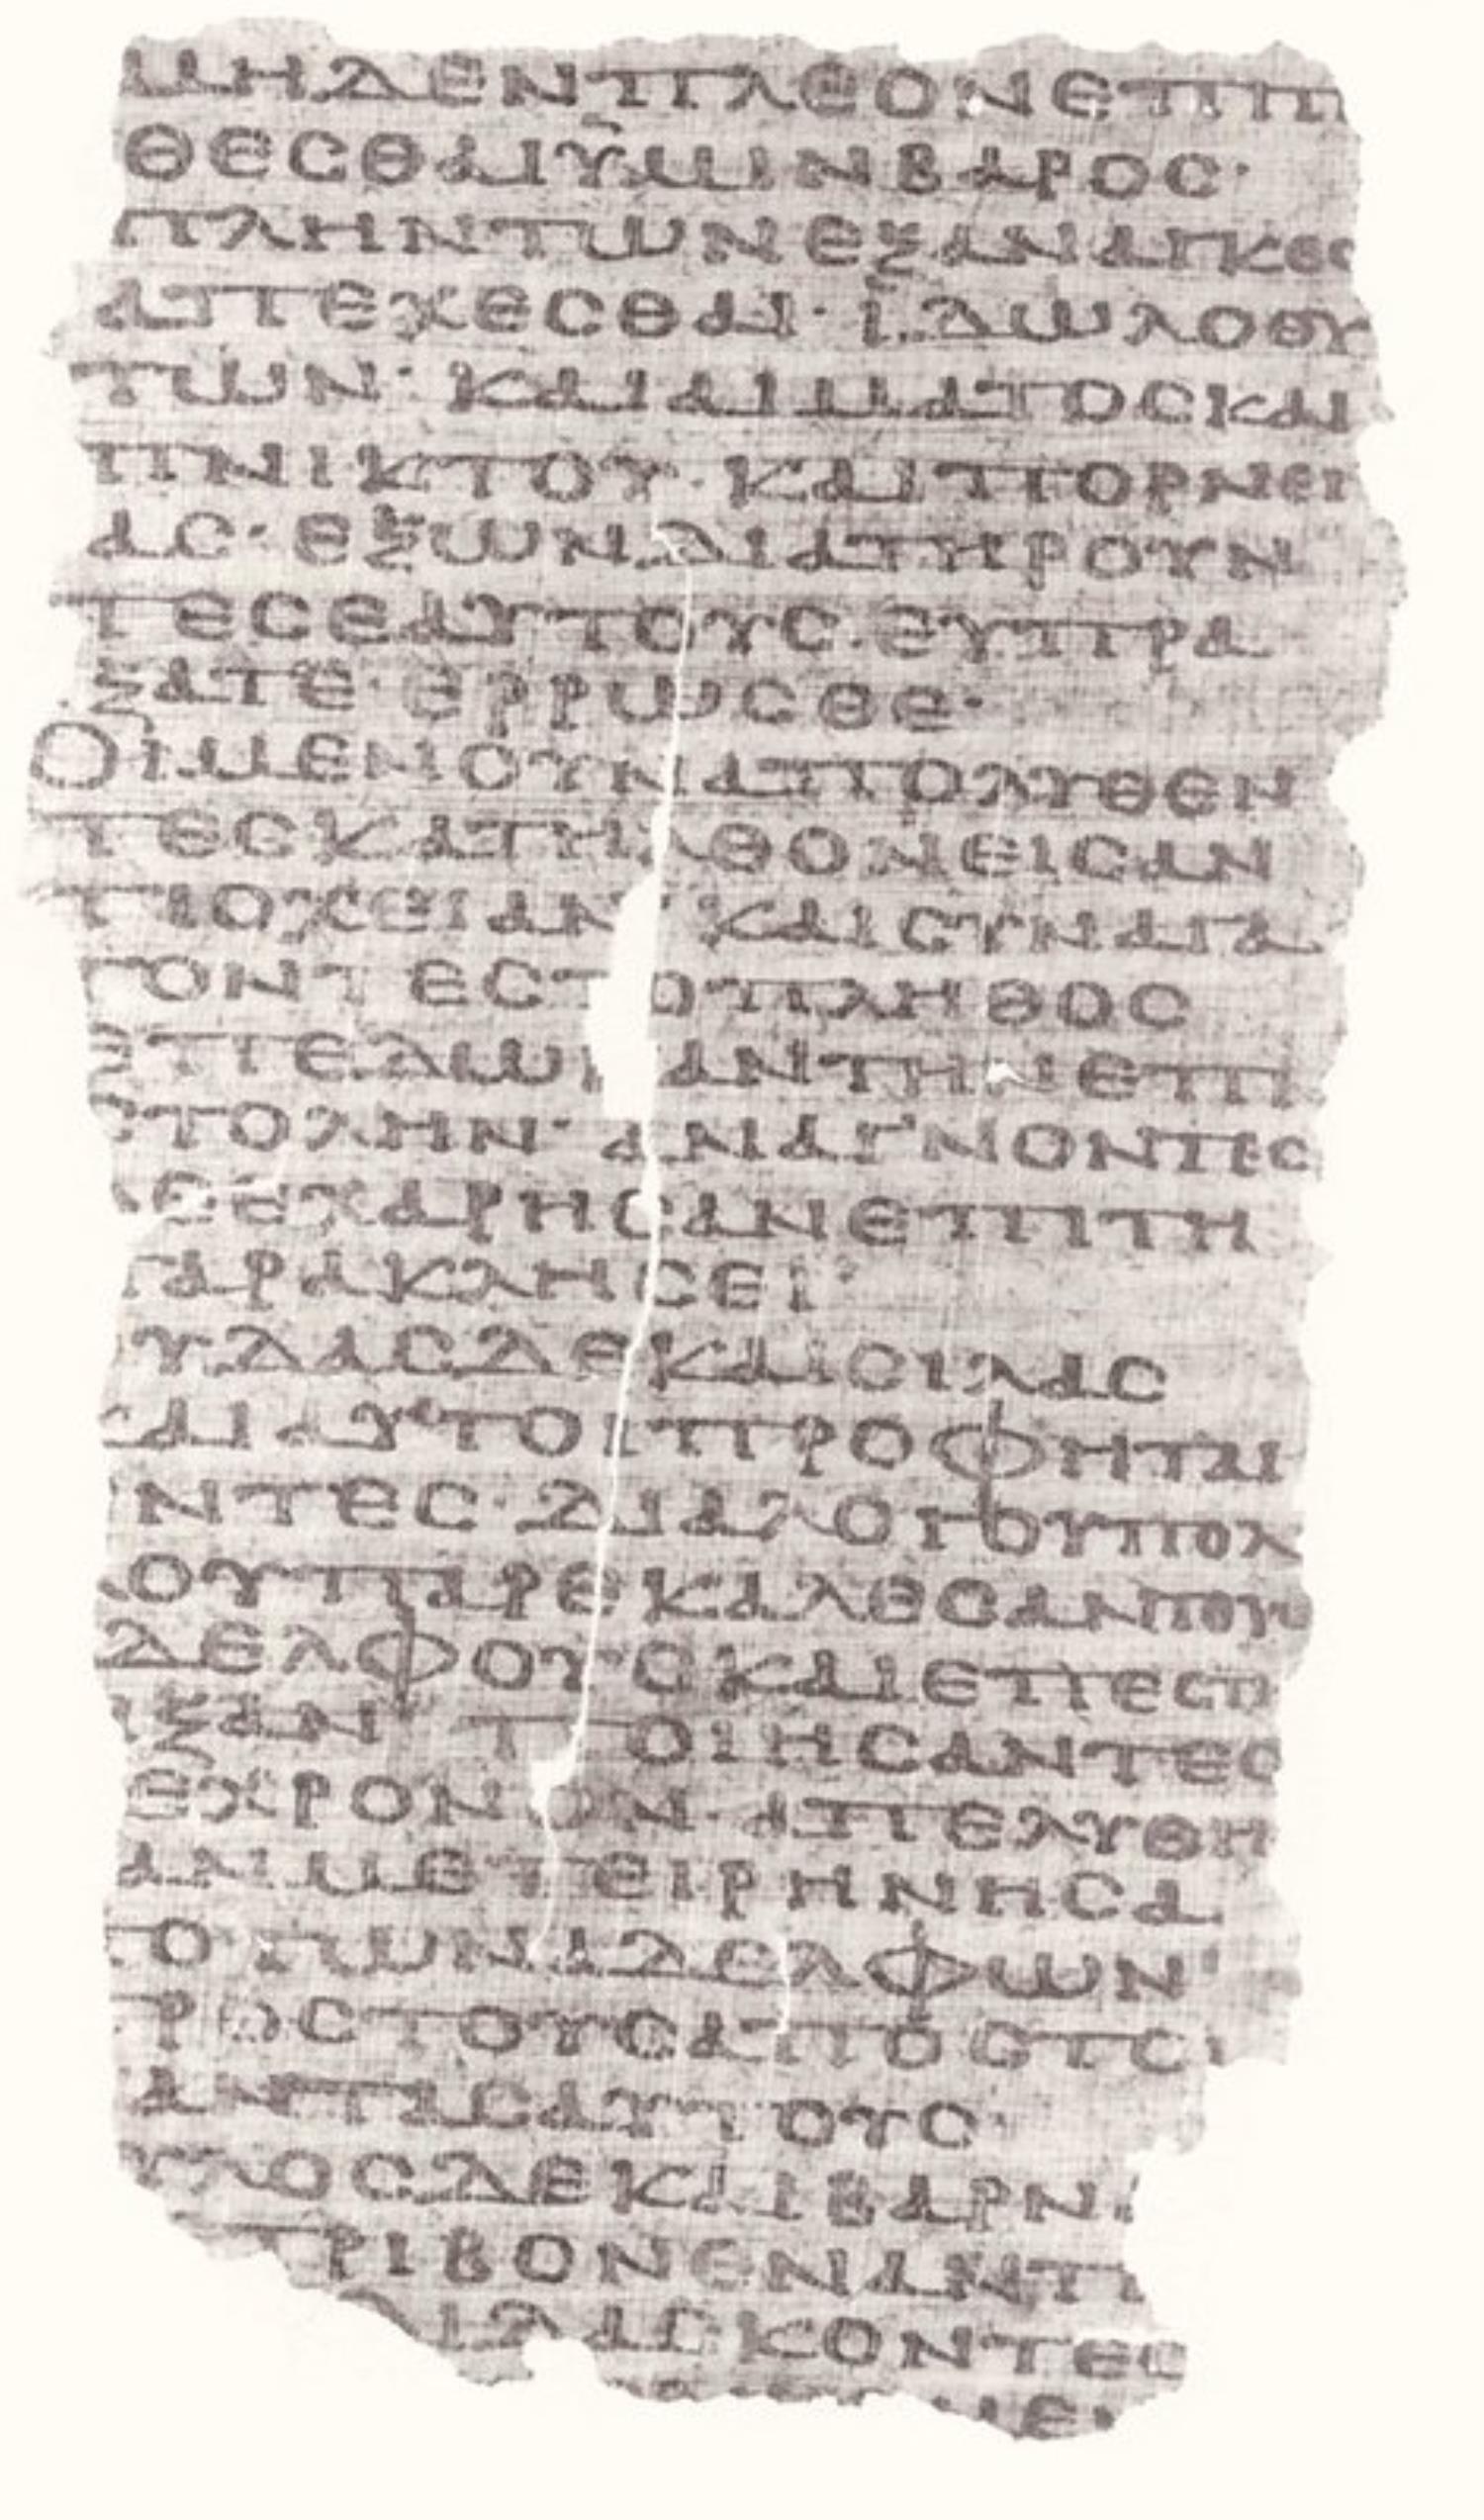 ΜΗΔΕΝΠΛΕΟΝΕΠΙΤΙ
ΘΕϹΘΑΙΥΜΙΝΒΑΡΟϹ·
ΠΛΗΝΤΩΝΕΞΑΝΑΓΚΕϹ
ΑΠΕΧΕϹΘΑΙ· ΪΔΩΛΟΘΥ
ΤΩΝ· ΚΑΙΑΙΜΑΤΟϹΚΑΙ
ΠΝΙΚΤΟΥ· ΚΑΙΠΟΡΝΕΙ
ΑϹ· ΕΞΩΝΔΙΑΤΗΡΟΥΝ
ΤΕϹΕΑΥΤΟΥϹ·ΕΥΠΡΑ
ΞΑΤΕ· ΕΡΡΩϹΘΕ·
ΟΙΜΕΝΟΥΝΑΠΟΛΥΘΕΝ
ΤΕϹΚΑΤΗΛΘΟΝΕΙϹΑΝ
ΤΙΟΧΕΙΑΝ ΚΑΙϹΥΝΑΓΑ
ΓΟΝΤΕϹΤΟΠΛΗΘΟϹ
ΕΠΕΔΩΚΑΝΤΗΝΕΠΙ
ϹΤΟΛΗΝ· ΑΝΑΓΝΟΝΤΕϹ
ΔΕΕΧΑΡΗϹΑΝΕΠΙΤΗ
ΠΑΡΑΚΛΗϹΕΙ·
ΥΔΑϹΔΕΚΑΙϹΙΛΑϹ
ΚΑΙΑΥΤΟΙΠΡΟΦΗΤΑΙ
ΝΤΕϹ· ΔΙΑΛΟΓΟΥΠΟΛ
ΛΟΥΠΑΡΕΚΑΛΕϹΑΝΤΟΥϹ
ΔΕΛΦΟΥϹΚΑΙΕΠΕϹΤΗ
ΙΞΑΝ· ΠΟΙΗϹΑΝΤΕϹ
ΕΧΡΟΝΟΝ· ΑΠΕΛΥΘΗ
ΑΝΜΕΤΕΙΡΗΝΗϹΑ
ΠΟΤΩΝΑΔΕΛΦΩΝ·
ΠΡΟϹΤΟΥϹΑΠΟϹΤΟΙ
ΑΝΤΑϹΑΥΤΟΥϹ·
ΥΛΟϹΔΕΚΑΙΒΑΡΝΑ
ΤΡΙΒΟΝΕΝΑΝΤΙ
ΔΙΔΑϹΚΟΝΤΕϹ
ΜΕΝ